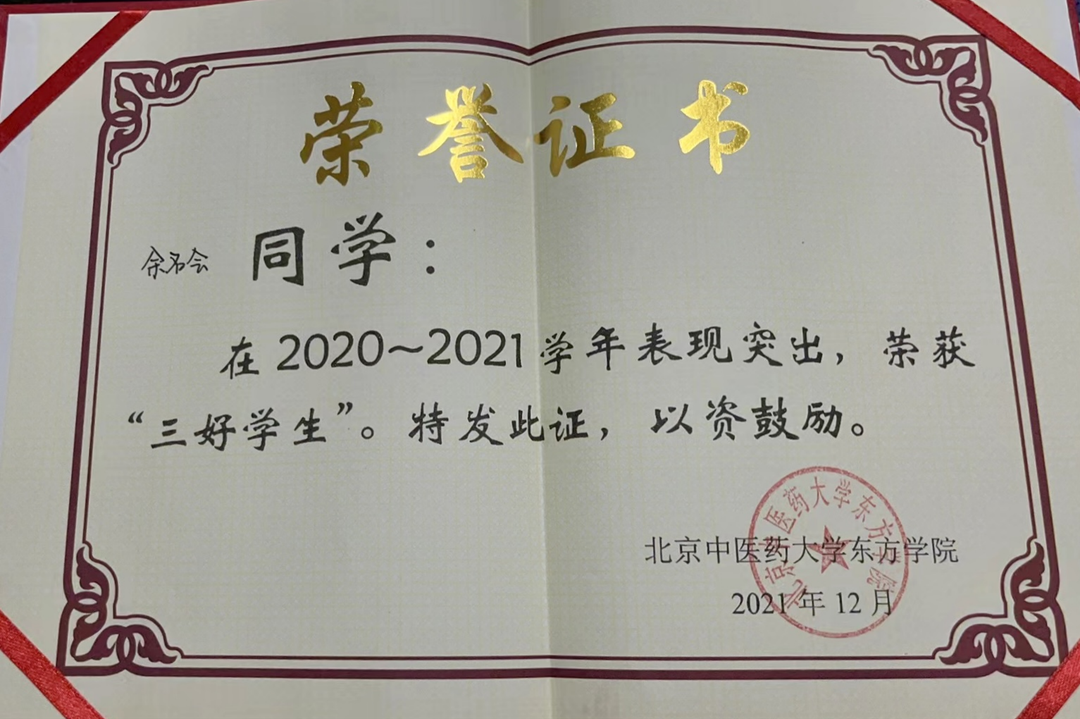 荣誉证书
余名会 同学：
在2020~2021学年表现突出，荣获
“三好学生”。特发此证，以资鼓励。
北京中医药大学东方学院
2021年12月
北京中医药大学东方学院